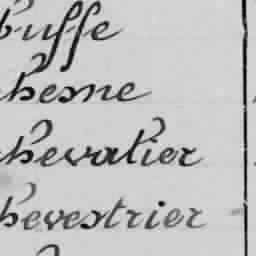 buffe
hesne
hevalier
hevestrier